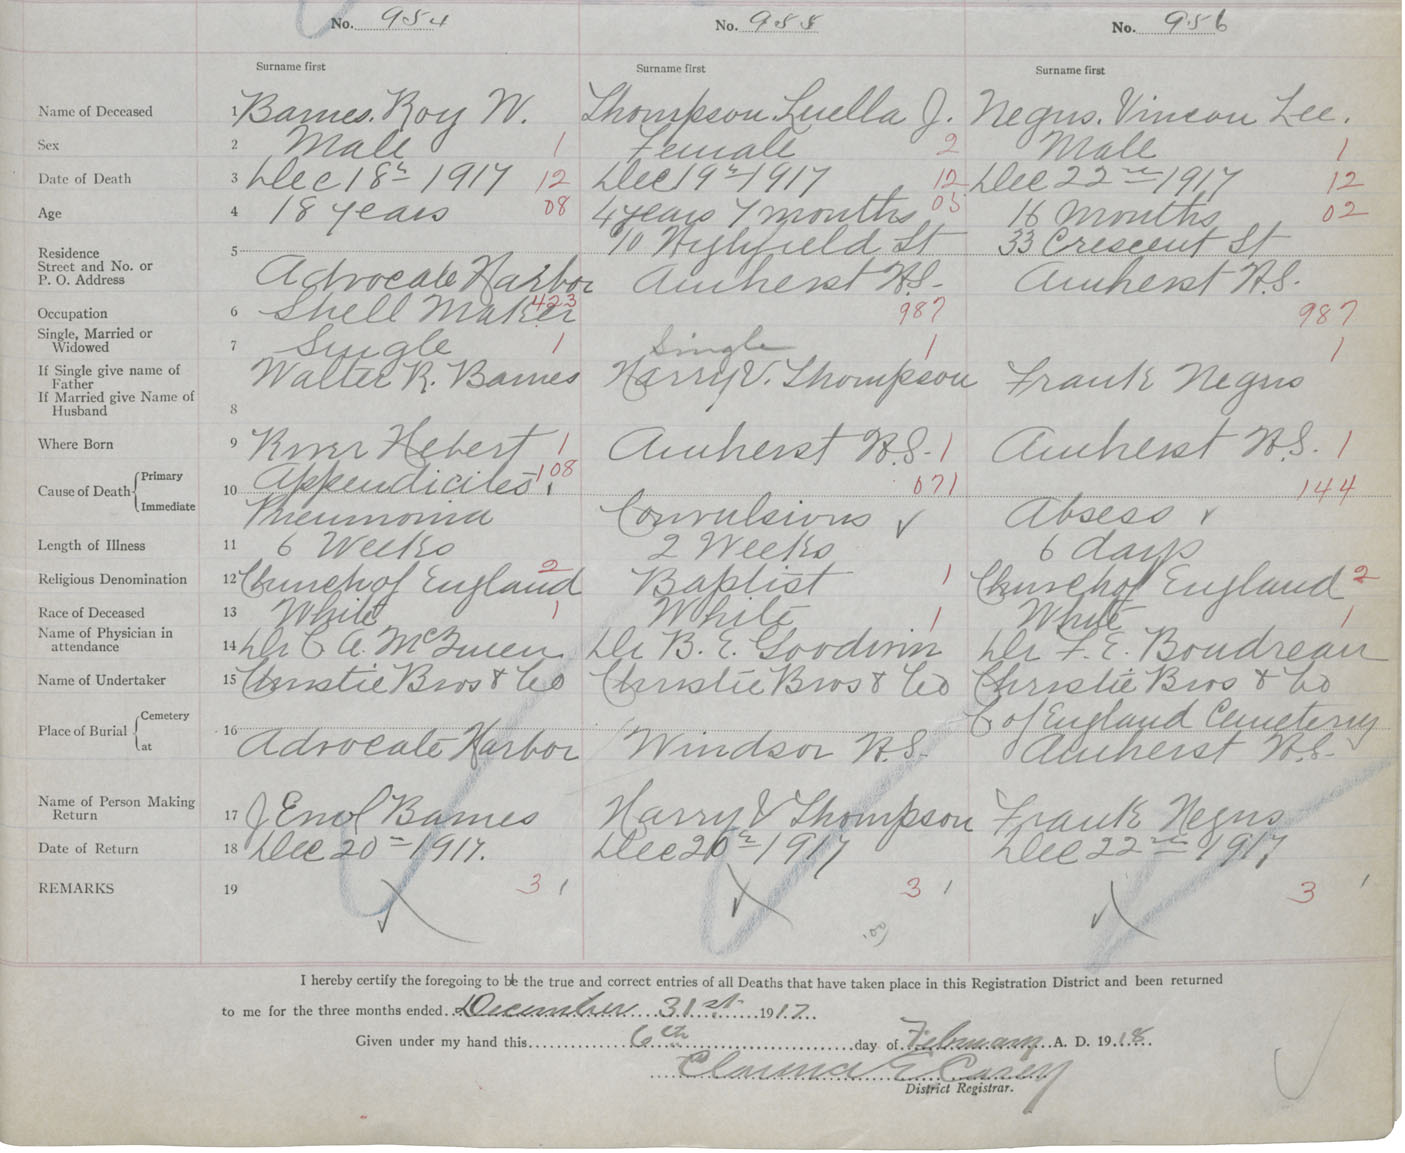 No. 954 No. 955 No. 956
Surname first Surname first Surname first
Name of Deceased 1 Barnes. Roy W. Thompson. Luella J. Negus. Vincon Lee.
Sex 2 Male 1 Female 2 Male 1
Date of Death 3 Dec 18th 1917 12 Dec 19th 1917 12 Dec 22nd 1917 12
Age 4 18 years 08 4 years 7 months 05 16 months 02
Residence 5 10 Highfield St 33 Crescent St
Street and No. or
P. O. Address Advocate Harbor Amherst N.S. Amherst N.S.
Occupation 6 Shell Maker 423 987 987
Single, Married or
Widowed 7 Single 1 Single 1 1
If Single give name of
Father Walter R. Barnes Harry V. Thompson Frank Negus
If Married give Name of
Husband 8
Where Born 9 River Hebert 1 Amherst N.S. 1 Amherst N.S. 1
Cause of Death Primary 10 Appendicites. 108 071 144
Immediate Pneumonia Convulsions Absess
Length of Illness 11 6 Weeks 2 Weeks 6 days
Religious Denomination 12 Church of England 2 Baptist 1 Church of England 2
Race of Deceased 13 White 1 White 1 White 1
Name of Physician in
attendance 14 Dr C A. Dr B. E. Goodwin Dr F. E. Boudreau
Name of Undertaker 15 Christie Bros & Co Christie Bros & Co Christie Bros & Co
Place of Burial Cemetery 16 C of England Cemeterry
at Advocate Harbor Windsor N.S. Amherst N.S.
Name of Person Making
Return 17 J Barnes Harry V Thompson Frank Negus
Date of Return 18 Dec 20th 1917. Dec 20th 1917 Dec 22nd 1917
REMARKS 19 3 1 3 1 3 1
I hereby certify the foregoing to be the true and correct entries of all Deaths that have taken place in this Registration District and been returned
to me for the three months ended December 31st 1917
Given under my hand this 6th day of February A. D. 1918
Clarence E Casey
District Registrar.